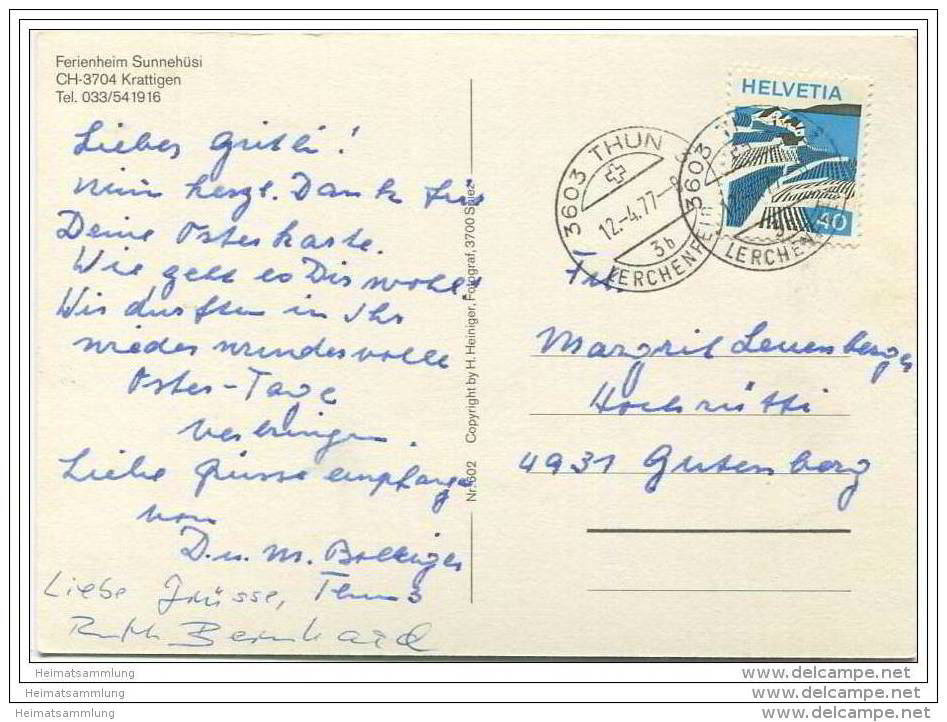 Ferienheim Sunnehüsi
CH-3704 Krattigen
Tel. 033/541916
Liebes Gritli!
Mein herzl. Dank für
Deine Osterkarte.
Wie geht es Dir wohl?
Wir durften in Ihr
wieder wundervolle
Oster-Tage
verbringen.
Liebe Grüsse empfange
von
D. u. M. Bolliger
Thun 3
Liebe Grüsse,
Ruth Bernhard
Nr. 602 Copyright by H. Heiniger, Fotograf, 3700 Spiez
HELVETIA
40
3603 THUN 3
12.-4.77-8
3b
LERCHENFELD
3603
LERCHENF
Frl.
Margrit Leuenberger
Hochrütti
4931 Gutenberg
Heimatsammlung
Heimatsammlung
Heimatsammlung
www.delcampe.net
www.delcampe.net
www.delcampe.net